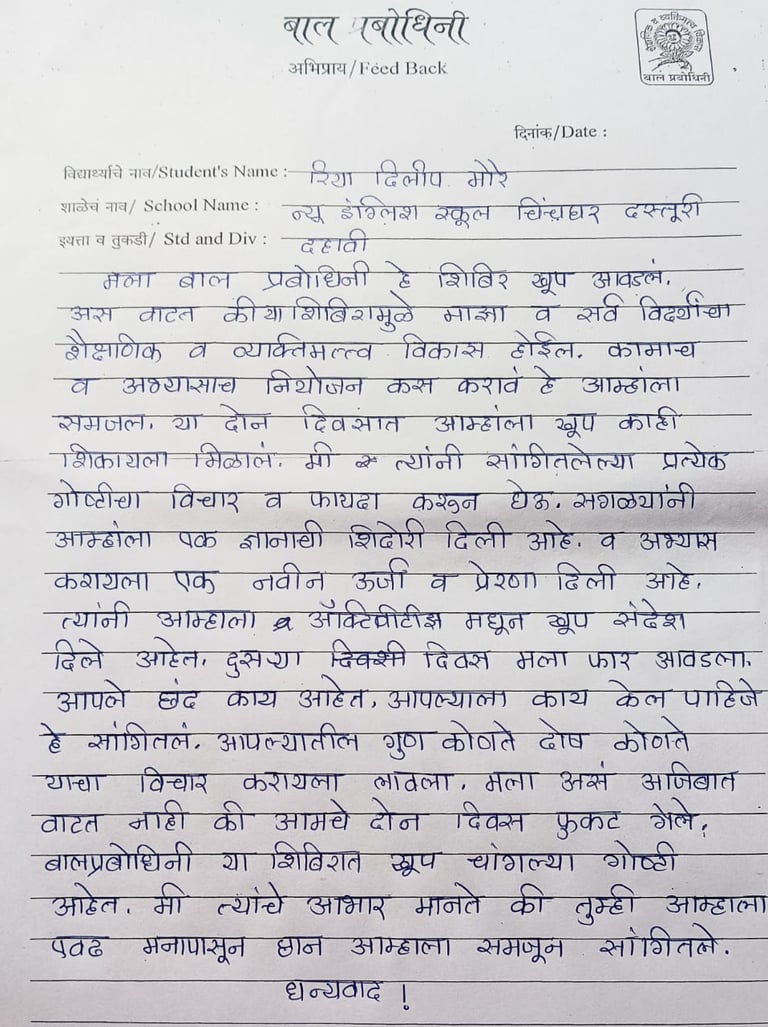 बाल प्रबोधिनी
अभिप्राय/Feed Back
बाल प्रबोधिनी
दिनांक/Date :
विद्यार्थ्याचे नाव/Student's Name :- रिया दिलीप मोरे
शाळेचं नाव/ School Name : न्यू इंग्लिश स्कूल चिंचघर दस्तूरी
इयत्ता व तुकडी/ Std and Div : दहावी
मला बाल प्रबोधिनी हे शिबिर खूप आवडलं.
अस वाटत की या शिबिरामुळे माझा व सर्व विदर्यांचा
शैक्षणिक व व्यक्तिमत्त्व विकास होईल. कामाच
व अभ्यासाच नियोजन कस करावं हे आम्हांला
समजल. या दोन दिवसात आम्हांला खूप काही
शिकायला मिळालं. मी त्यांनी सांगितलेल्या प्रत्येक
गोष्टीचा विचार व फायदा करून घेऊ. सगळ्यांनी
आम्हांला एक ज्ञानाची शिदोरी दिली आहे. व अभ्यास
करायला एक नवीन ऊर्जा व प्रेरणा दिली आहे.
त्यांनी आम्हाला ॲक्टिवीटीझ मधून खूप संदेश
दिले आहेत. दुसऱ्या दिवस मला फार आवडला.
आपले छंद काय आहेत. आपल्याला काय केल पाहिजे
हे सांगितलं. आपल्यातील गुण कोणते दोष कोणते
याचा विचार करायला लावला. मला असं अजिबात
वाटत नाही की आमचे दोन दिवस फुकट गेले.
बालप्रबोधिनी या शिबिरात खूप चांगल्या गोष्टी
आहेत. मी त्यांचे आभार मानते की तुम्ही आम्हाला
एवढ मनापासून छान आम्हाला समजून सांगितले.
धन्यवाद !